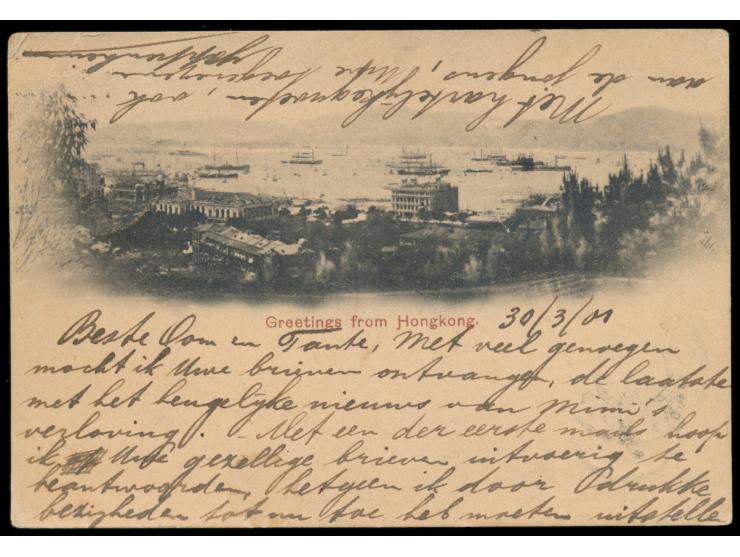 Greetings from Hongkong.
30/3/01
Beste Oom en Tante, Met veel genoegen
mocht ik Uwe brieven ontvangen, de laatste
met het heugelijke nieuws van Mimi's
verloving. - Met een der eerste mails hoop
ik Uwe gezellige brieven uitvoerig te
beantwoorden, hetgeen ik door drukke
bezigheden tot nu toe heb moeten uitstelle
Met hartelijke groeten, ook
aan de jongens, Uw